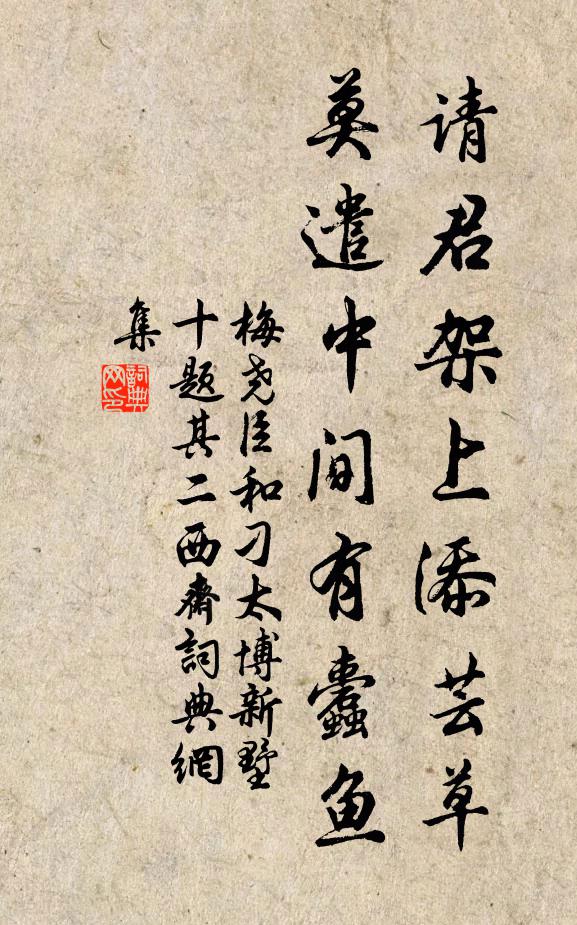 请君架上添芸草
莫遣中间有蠹鱼
梅尧臣和刁太博新墅
十题其二西斋詞典網
集
詞典
网印